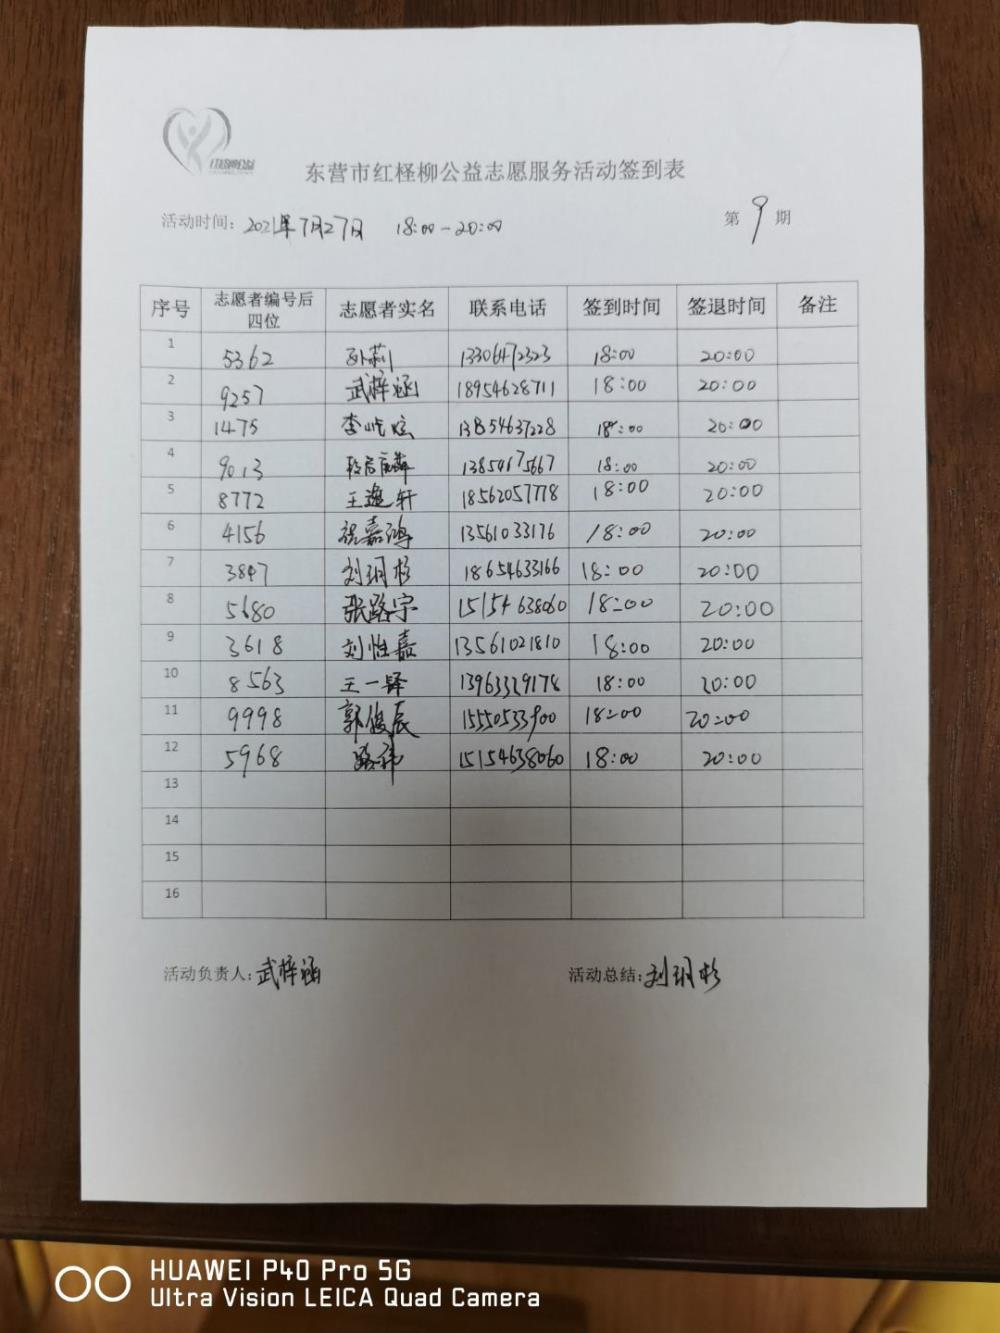 红柽柳公益
东营市红柽柳公益志愿服务活动签到表
活动时间: 2021年7月27日 18:00-20:00 第 9 期
序号 志愿者编号后四位 志愿者实名 联系电话 签到时间 签退时间 备注
1 5362 孙莉 13306472323 18:00 20:00
2 9257 武梓涵 18954628711 18:00 20:00
3 1475 李屹炫 13854637228 18:00 20:00
4 9013 13854675667 18:00 20:00
5 8772 王逸轩 18562057778 18:00 20:00
6 4156 张嘉鸿 13561033176 18:00 20:00
7 3847 刘玥杉 18654633166 18:00 20:00
8 5680 张路宇 15154638060 18:00 20:00
9 3618 刘怡嘉 13561021810 18:00 20:00
10 8563 王一铎 13963329178 18:00 20:00
11 9998 郭俊辰 15550533900 18:00 20:00
12 5968 路祎 15154638060 18:00 20:00
13
14
15
16
活动负责人: 武梓涵 活动总结: 刘玥杉
HUAWEI P40 Pro 5G
Ultra Vision LEICA Quad Camera